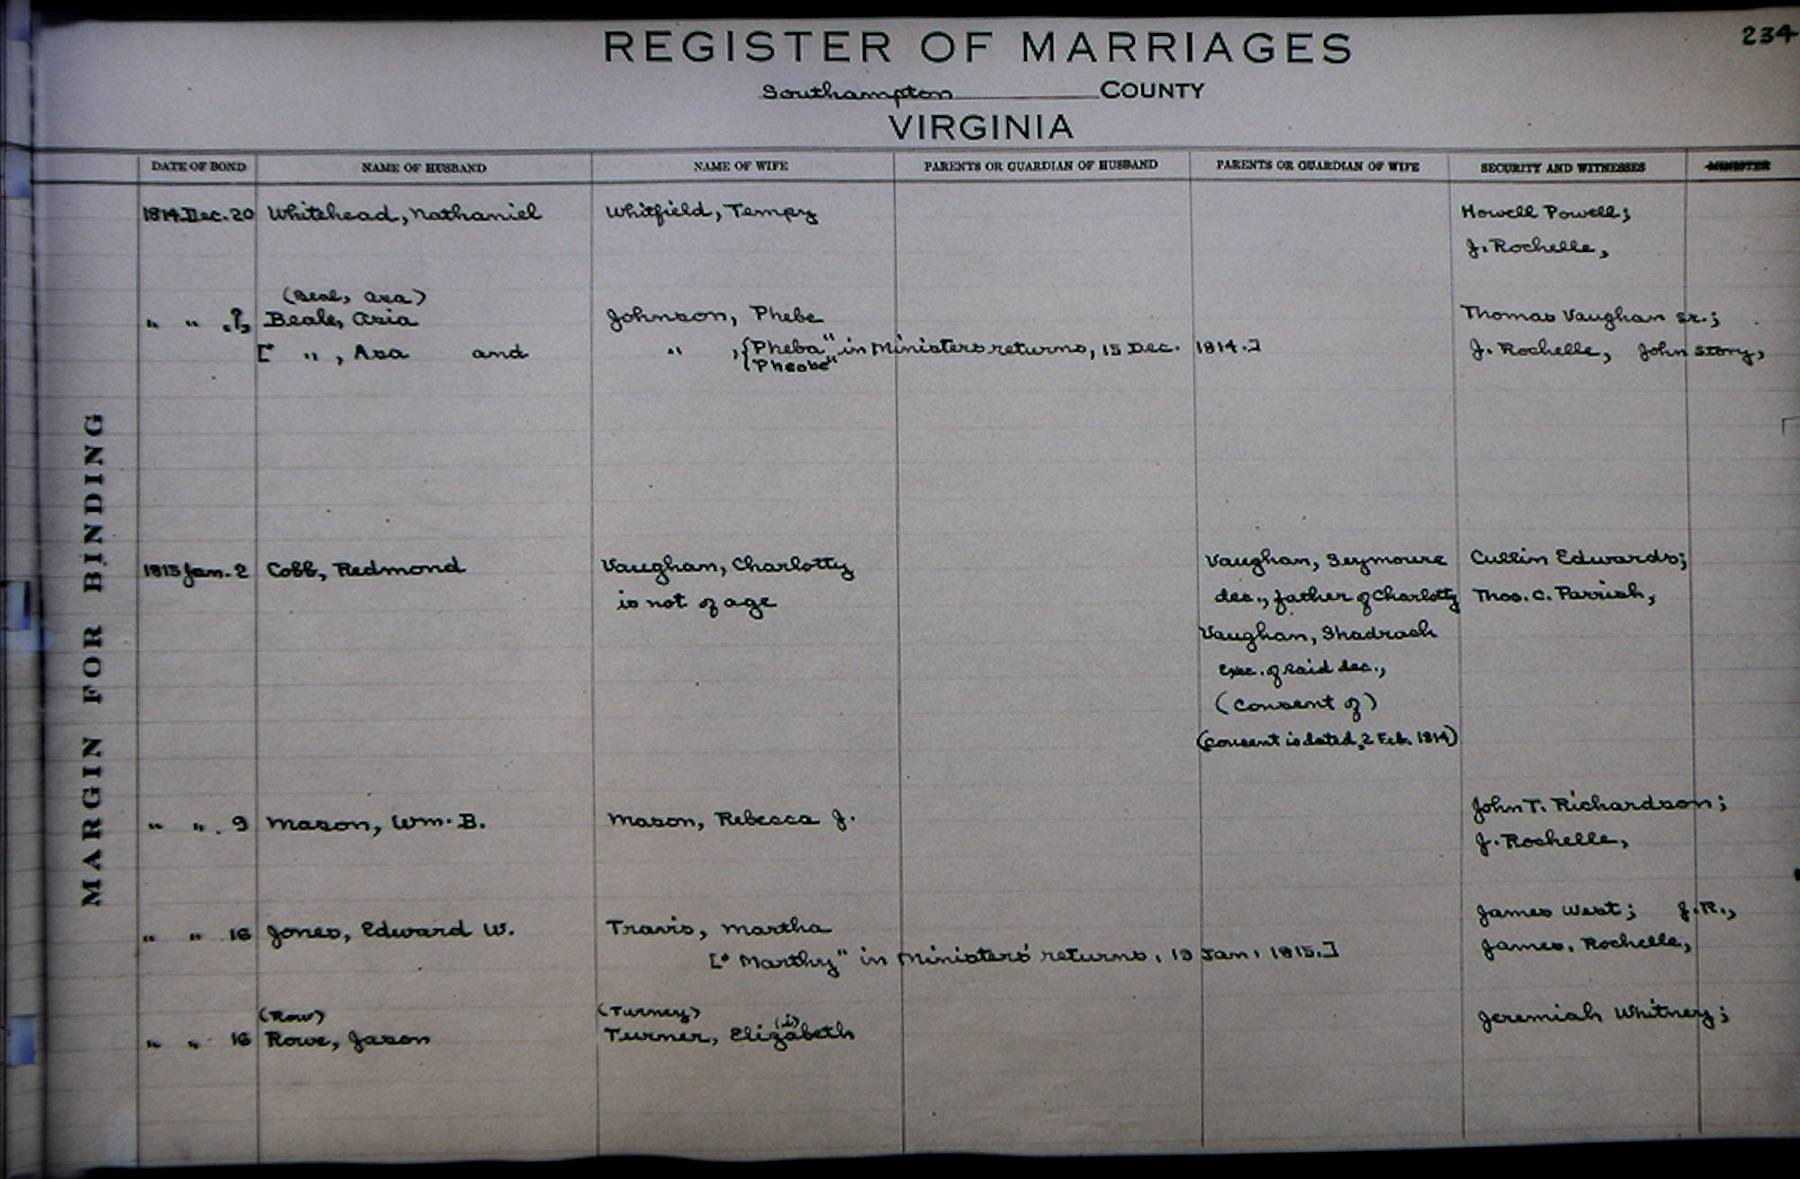 234
REGISTER OF MARRIAGES
Southampton COUNTY
VIRGINIA
DATE OF BOND NAME OF HUSBAND NAME OF WIFE PARENTS OR GUARDIAN OF HUSBAND PARENTS OR GUARDIAN OF WIFE SECURITY AND WITNESSES MINISTER
1814 Dec. 20 Whitehead, Nathaniel Whitfield, Tempy Howell Powell;
J. Rochelle,
(Beal, Asa)
" " ? Beale, Asia Johnson, Phebe Thomas Vaughan Sr.;
[" " , Asa and " , {"Pheba" in Ministers returns, 15 Dec. 1814.] J. Rochelle, John Story,
"Pheobe"
MARGIN FOR BINDING
1815 Jan. 2 Cobb, Redmond Vaughan, Charlotty Vaughan, Seymoure Cullin Edwards;
is not of age dec., father of Charlotty Thos. C. Parrish,
Vaughan, Shadrach
Exec. of said dec.,
(Consent of)
(consent is dated, 2 Feb. 1814)
" " 9 Mason, Wm. B. Mason, Rebecca J. John T. Richardson;
J. Rochelle,
" " 16 Jones, Edward W. Travis, Martha James West; J.R.,
["Marthy" in Ministers' returns, 19 Jan. 1815.] James, Rochelle,
(Row) (Turney)
" " 16 Rowe, Jason Turner, Elizabeth (s) Jeremiah Whitney;